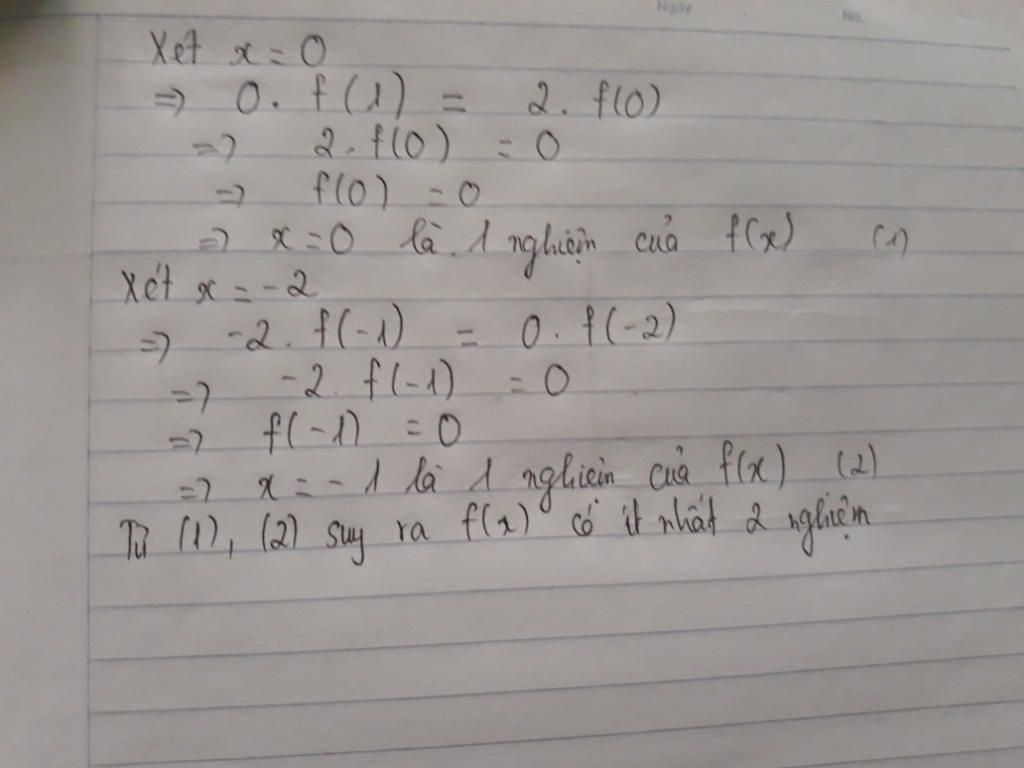 Ngày
No.
Xét x = 0
=> 0. f(1) = 2. f(0)
=> 2. f(0) = 0
=> f(0) = 0
=> x = 0 là 1 nghiệm của f(x) (1)
Xét x = -2
=> -2. f(-1) = 0. f(-2)
=> -2. f(-1) = 0
=> f(-1) = 0
=> x = -1 là 1 nghiệm của f(x) (2)
Từ (1), (2) suy ra f(x) có ít nhất 2 nghiệm